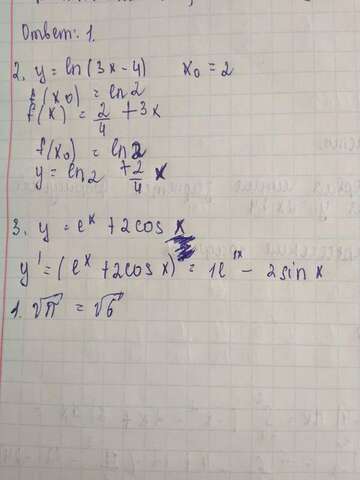 Ответ: 1.
2. y = ln(3x-4) x₀ = 2
f(x₀) = ln2
f(x) = 2/4 + 3x
f(x₀) = ln2
y = ln2 + 2/4 x
3. y = eˣ + 2cos x
y' = (eˣ + 2cos x) = 1e¹ˣ - 2sin x
1. √π = √6